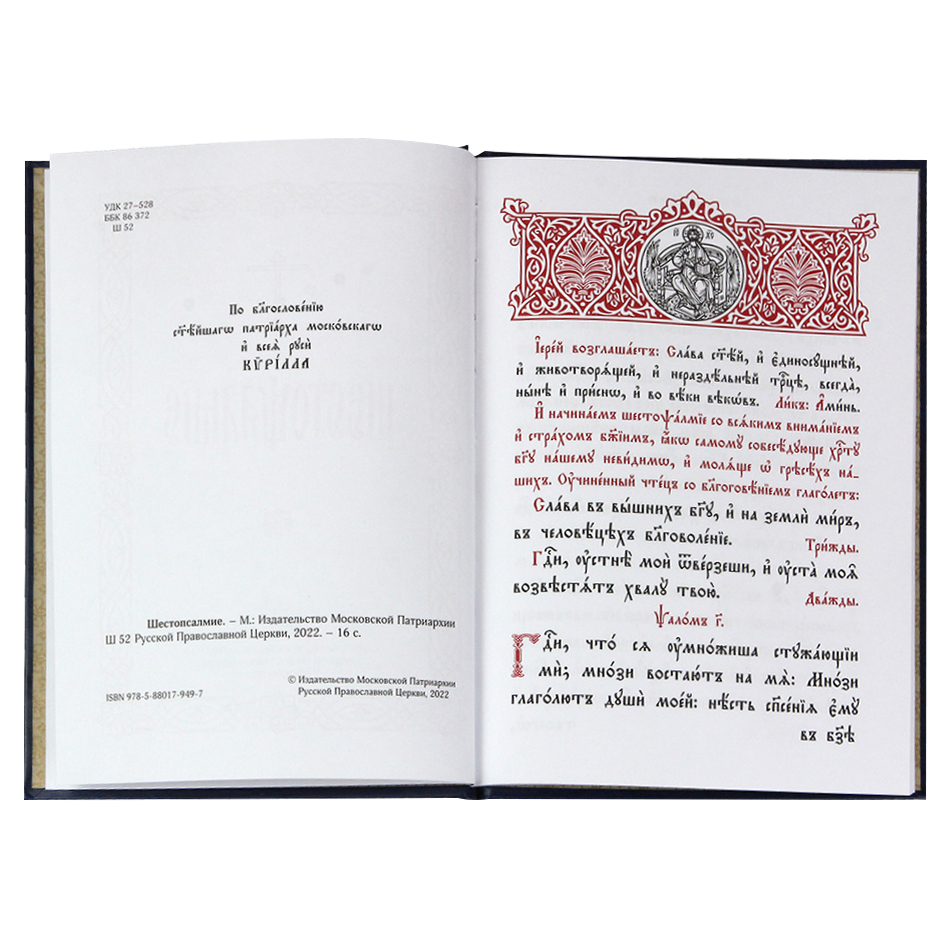 УДК 27–528
ББК 86 372
Ш 52
По бл҃гослове́нїю
ст҃ѣ́йшагѡ патрїа́рха моско́вскагѡ
и҆ всеѧ̀ рꙋсѝ
КѴРІ́ЛЛА
Шестопсалмие. – М.: Издательство Московской Патриархии
Ш 52 Русской Православной Церкви, 2022. – 16 с.
© Издательство Московской Патриархии
ISBN 978-5-88017-949-7
Русской Православной Церкви, 2022
І҆С ХС
І҆ере́й возглаша́етъ: Сла́ва ст҃ѣ́й, и҆ є҆диносꙋ́щнѣй,
и҆ животворѧ́щей, и҆ нераздѣ́льнѣй трⷪ҇цѣ, всегда̀,
ны́нѣ и҆ при́снѡ, и҆ во вѣ́ки вѣкѡ́въ. Ли́къ: А҆ми́нь.
И҆ начина́емъ шестоѱа́лмїе со всѧ́кимъ внима́нїемъ
и҆ стра́хомъ бж҃їимъ, ꙗ҆́кѡ самомꙋ̀ собесѣ́дꙋюще хрⷭ҇тꙋ̀
бг҃ꙋ на́шемꙋ неви́димѡ, и҆ молѧ́ще ѡ҆ грѣсѣ́хъ на-
шихъ. Оу҆чине́нный чте́цъ со бл҃гоговѣ́нїемъ глаго́летъ:
Сла́ва въ вы́шнихъ бг҃ꙋ, и҆ на землѝ ми́ръ,
въ человѣ́цѣхъ бл҃говоле́нїе. Три́жды.
Гдⷭ҇и, оу҆стнѣ̀ моѝ ѿве́рзеши, и҆ оу҆ста̀ моѧ̑
возвѣстѧ́тъ хвалꙋ̀ твою̀. Два́жды.
Ѱало́мъ г҃.
Гдⷭ҇и, что́ сѧ оу҆мно́жиша стꙋжа́ющїи
мѝ; мно́зи востаю́тъ на мѧ̀: Мно́зи
глаго́лютъ дꙋшѝ мое́й: нѣ́сть сп҃се́нїѧ є҆мꙋ̀
въ бз҃ѣ